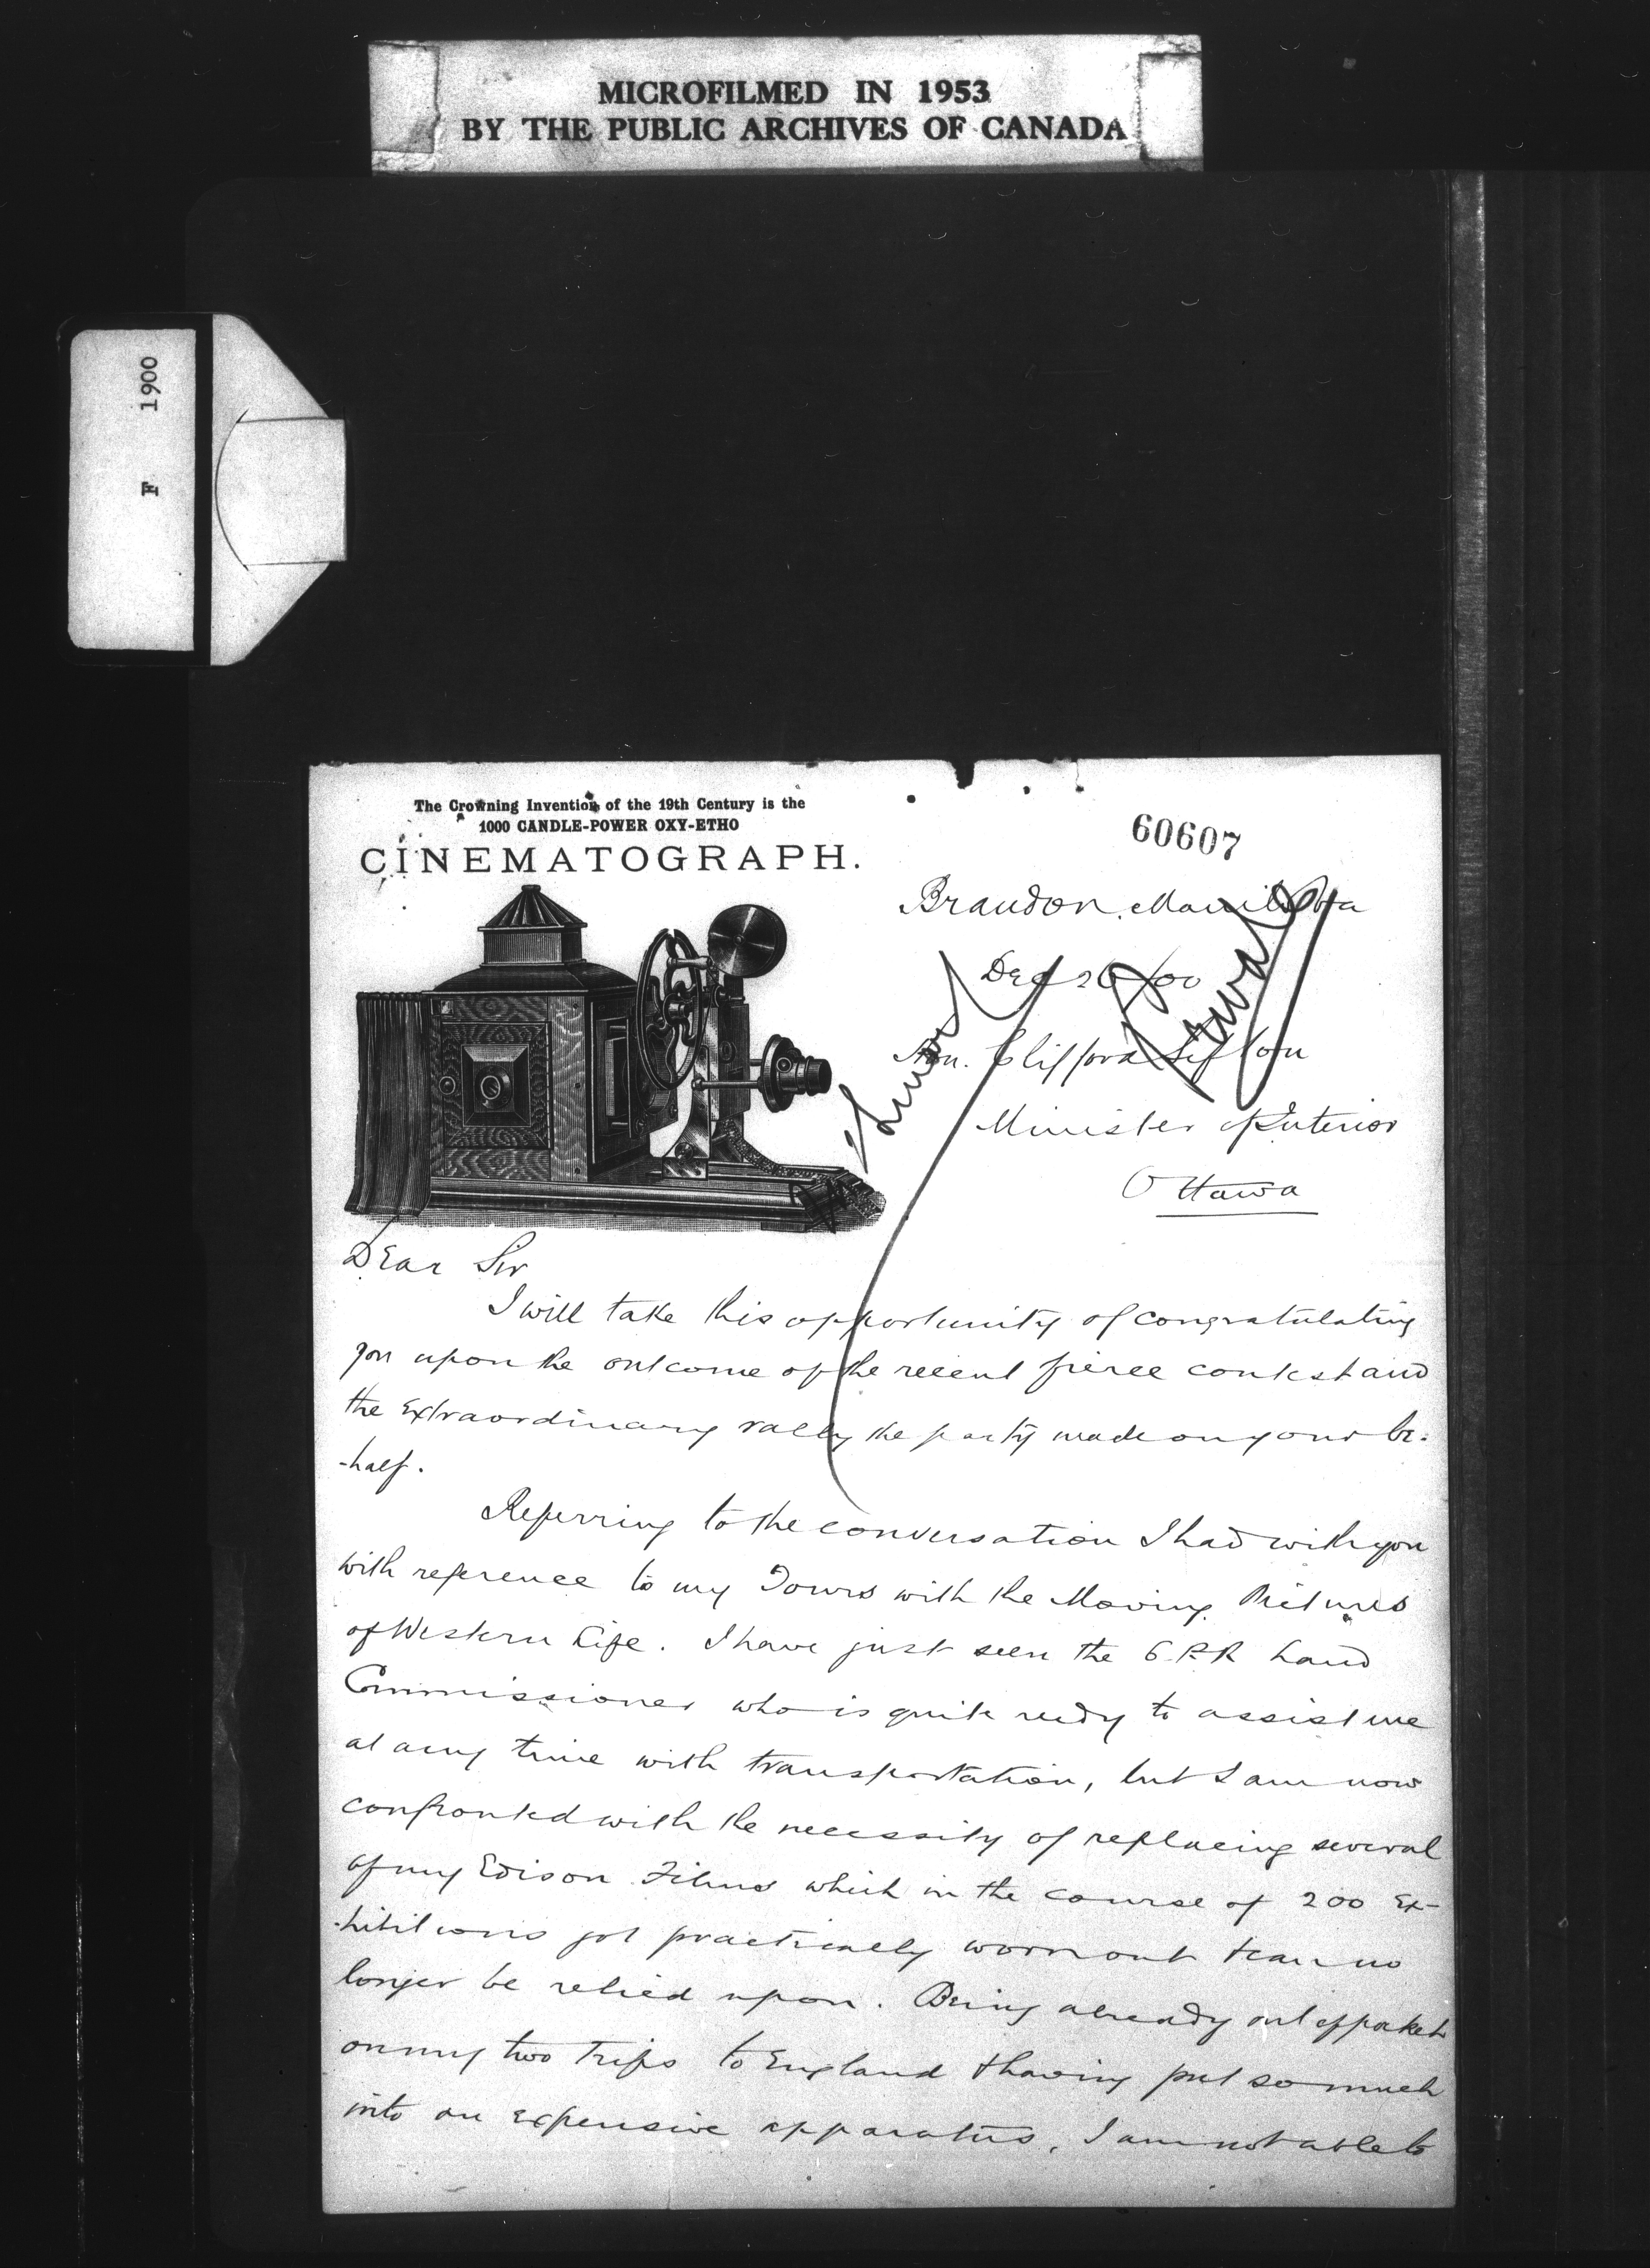 MICROFILMED IN 1953
BY THE PUBLIC ARCHIVES OF CANADA
F 1900
The Crowning Invention of the 19th Century is the
1000 CANDLE-POWER OXY-ETHO
CINEMATOGRAPH.
60607
Brandon. Manitoba
Dec 26/00
Hon. Clifford Sifton
Minister of Interior
Ottawa
Dear Sir
I will take this opportunity of congratulating
you upon the outcome of the recent fierce contest and
the Extraordinary rally the party made on your be-
-half.
Referring to the conversation I had with you
with reference to my Tours with the Moving Pictures
of Western Life. I have just seen the C.P.R Land
Commissioner who is quite redy to assist me
at any time with transportation, but I am now
confronted with the necessity of replacing several
of my Edison Films which in the course of 200 Ex-
-hibitions got practically worn out & can no
longer be relied upon. Being already out of pocket
on my two Trips to England & having put so much
into an Expensive apparatus, I am not able to